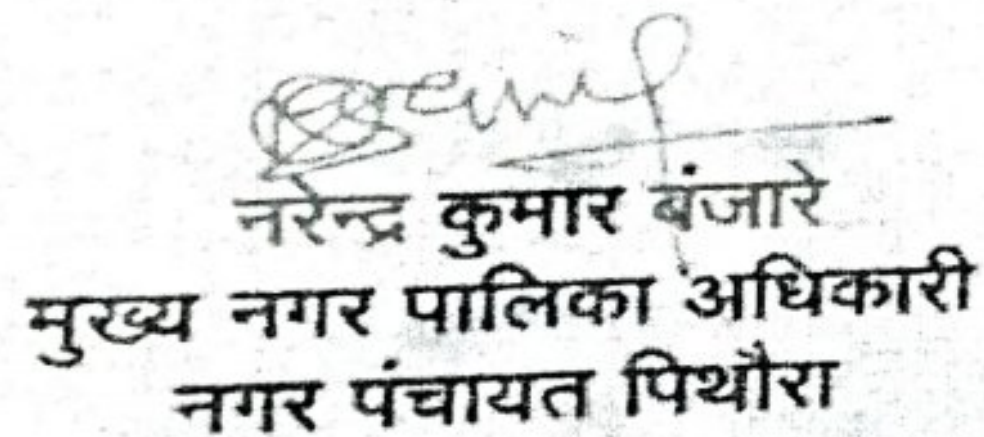 नरेन्द्र कुमार बंजारे
मुख्य नगर पालिका अधिकारी
नगर पंचायत पिथौरा